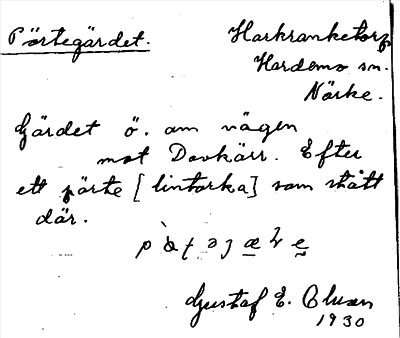 Pörtegärdet.
Harkranketorp
Hardemo sn.
Närke.
Gärdet ö. om vägen
mot Davkärr. Efter
ett pörte [lintorka] som stått
där.
Gustaf E. Olsson
1930